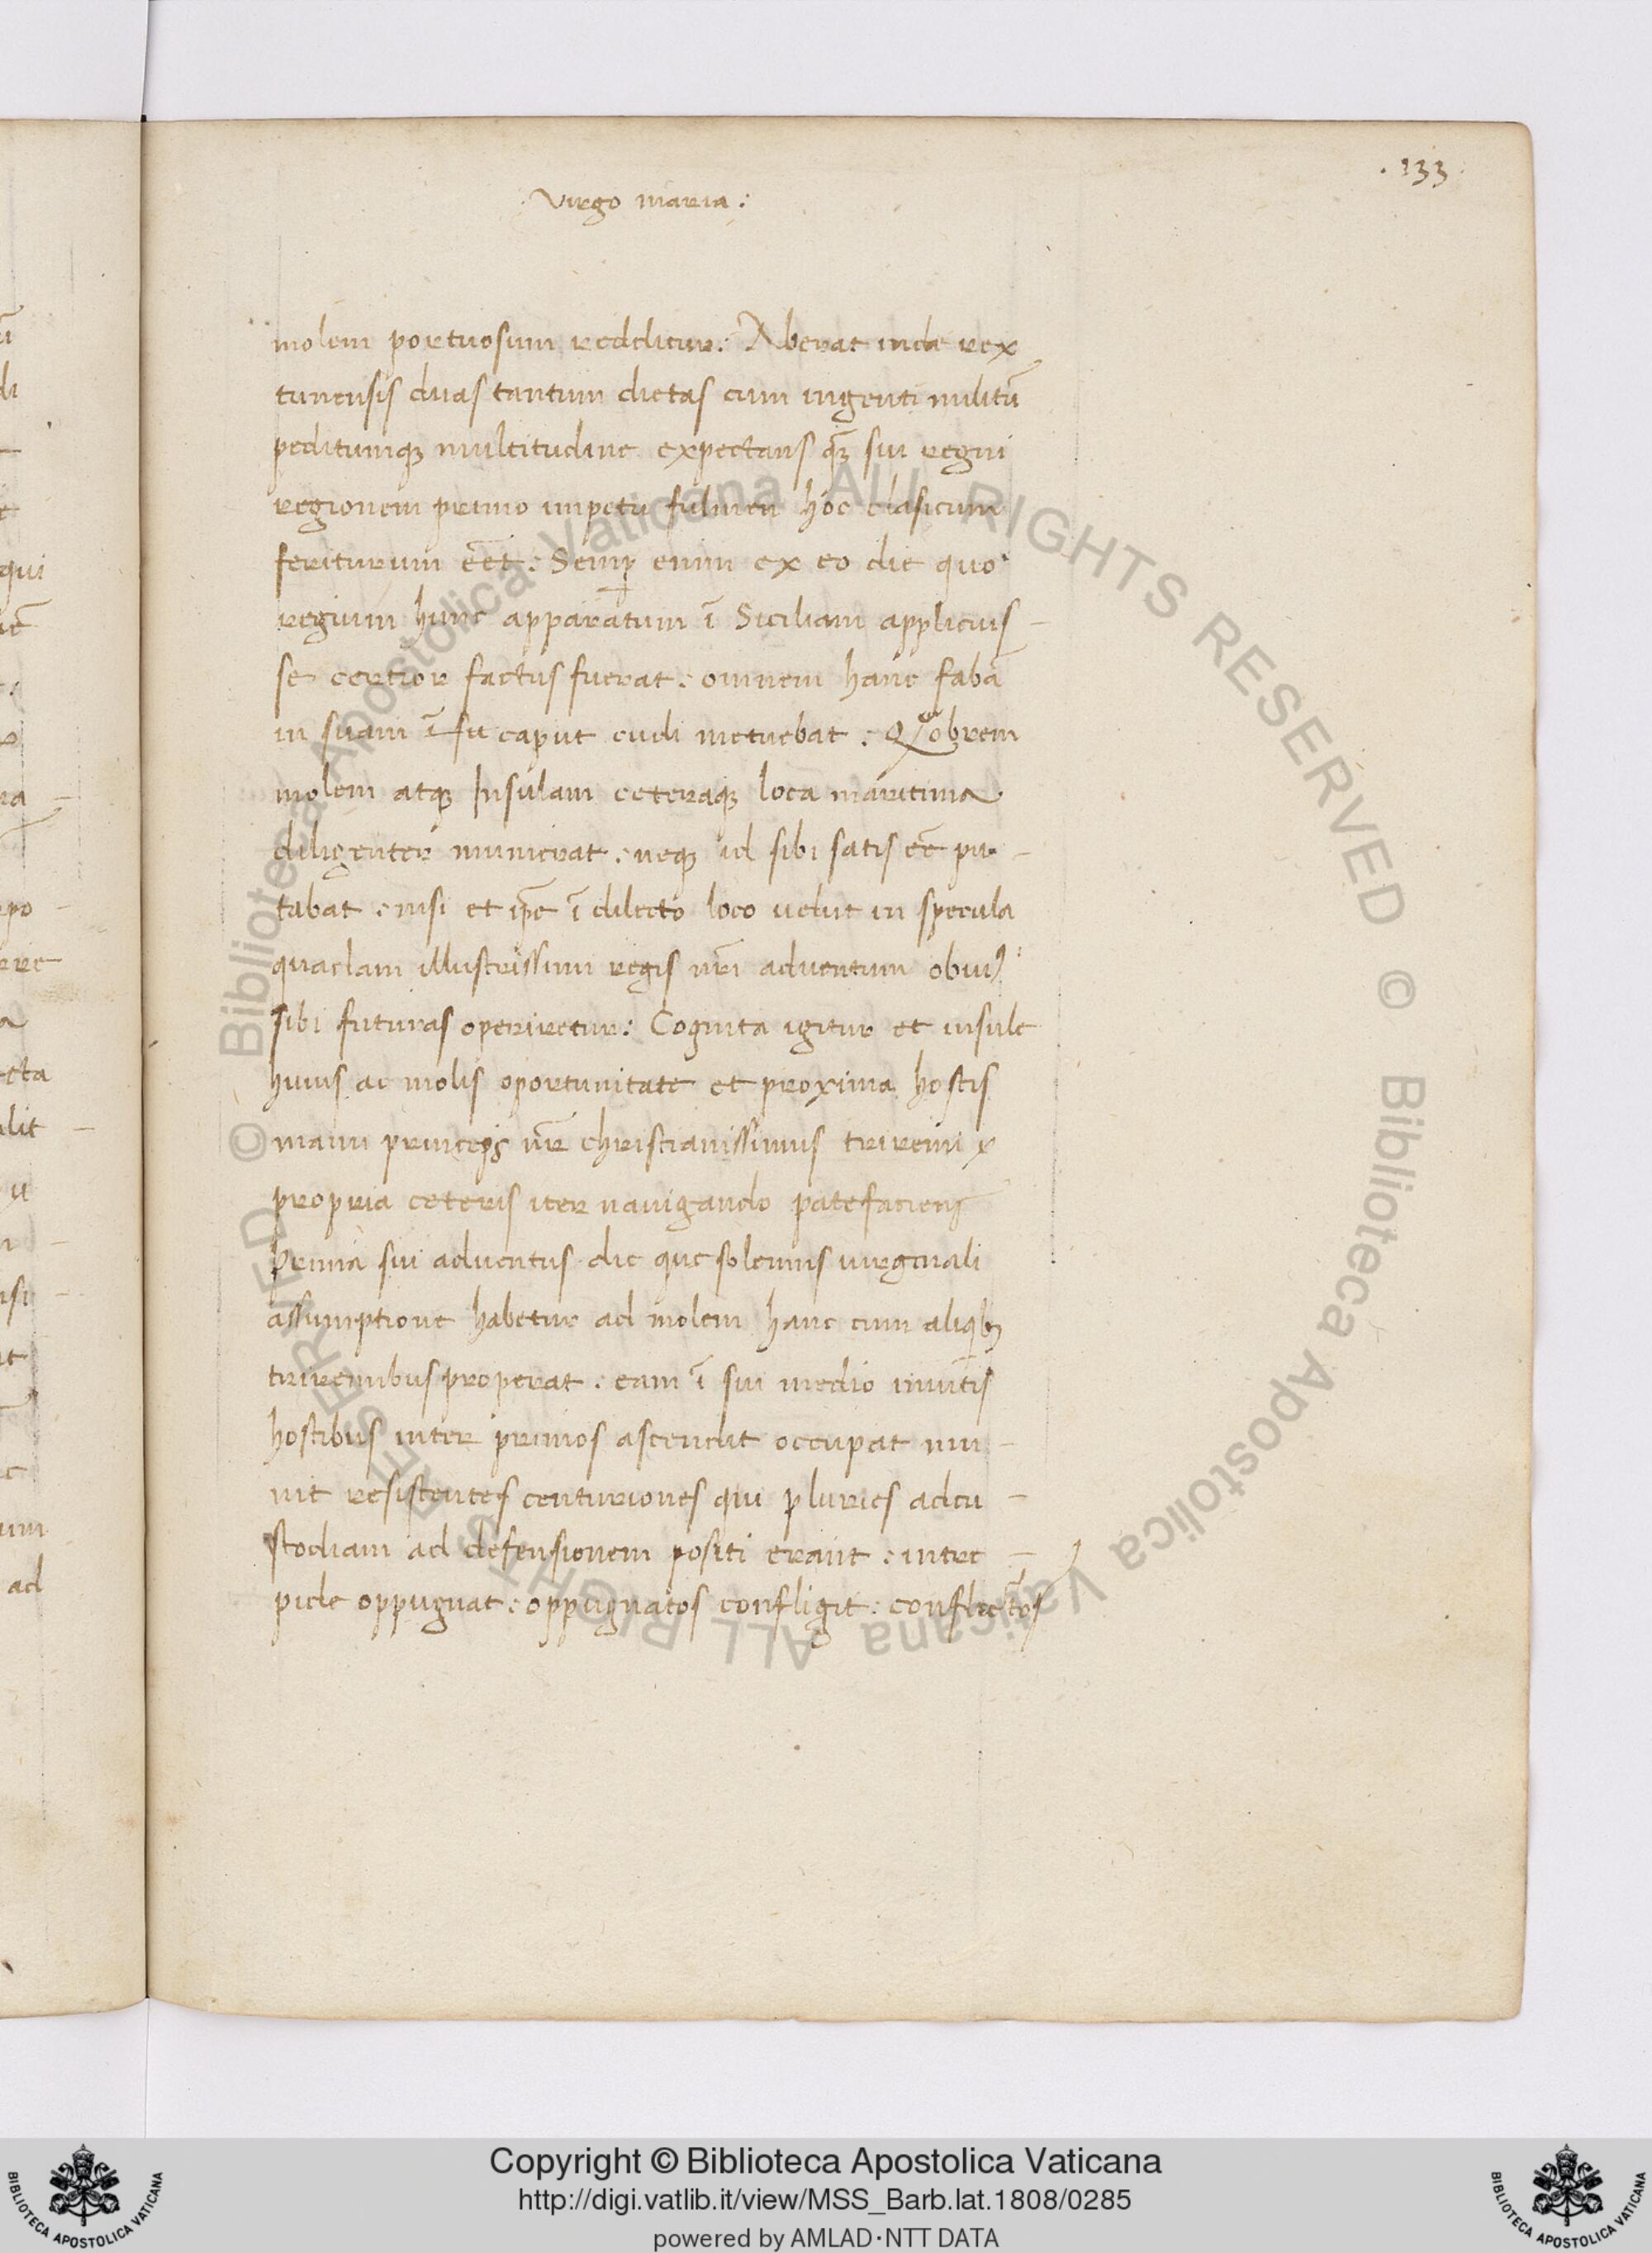 .133.
.Virgo maria:
molem portuosum redditur: Aberat inde rex
tunensis duas tantum dietas cum ingenti militũ
peditumqꝫ multitudine expectans qꝫ sui regni
regionem primo impetu fulmen hoc clasicum
feriturum eẽt: Semꝑ enim ex eo die quo
regium hunc apparatum ĩ Siciliam applicuis–
se certior factus fuerat: omnem hanc fabã
in suam ĩsu caput cudi metuebat: Qobrem
molem atqꝫ Insulam ceteraqꝫ loca maritima
diligenter munierat: neqꝫ id sibi satis eẽ pu–
tabat: nisi et ip̃e ĩ dilecto loco velut in specula
quadam illustrissimi regis nr̃i adventum obviꝰ
sibi futuras operiretur: Cognita igitur et insule
huius ac molis oportunitate et proxima hostis
manu princeps nr̃ christianissimus triremi
propria ceteris iter navigando patefaciens
Prima sui adventus die que solemnis virginali
assumptione habetur ad molem hanc cum aliqbꝫ
triremibus properat: eam ĩ sui medio invitis
hostibus inter primos ascendit occupat mu–
nit resistentes centuriones qui pluries ad cu–
stodiam ad defensionem positi erant: intre–
pide oppugnat: oppugnatos confligit: conflictos
Copyright © Biblioteca Apostolica Vaticana
http://digi.vatlib.it/view/MSS_Barb.lat.1808/0285
powered by AMLAD·NTT DATA
BIBLIOTECA APOSTOLICA VATICANA
BIBLIOTECA APOSTOLICA VATICANA
© Biblioteca Apostolica Vaticana ALL RIGHTS RESERVED © Biblioteca Apostolica Vaticana ALL RIGHTS RESERVED